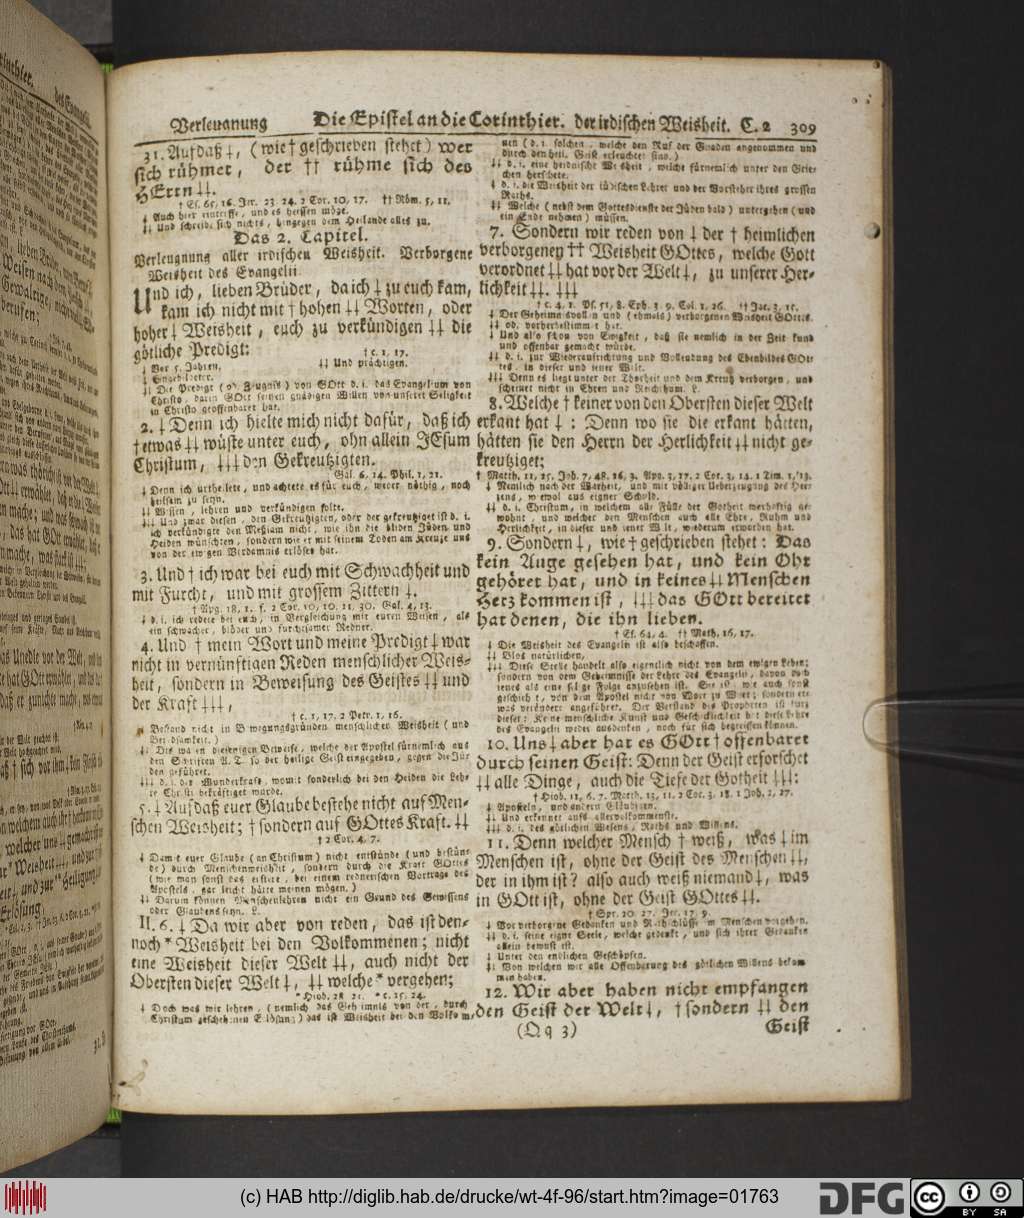 Verleugnung Die Epistel an die Corinthier. der irdischen Weisheit. C. 2 309
31. Aufdaß ⸸, (wie † geschrieben stehet) wer
sich rühmet, der †† rühme sich des
HErrn ⸸⸸.
† Es. 65, 16. Jer. 23. 24. 2 Cor. 10, 17. †† Röm. 5, 11.
⸸ Auch hier eintreffe, und es heissen möge.
⸸⸸ Und schreibe sich nichts, hingegen dem Heilande alles zu.
Das 2. Capitel.
Verleugnung aller irdischen Weisheit. Verborgene
Weisheit des Evangelii
Und ich, lieben Brüder, da ich ⸸ zu euch kam,
kam ich nicht mit † hohen ⸸⸸ Worten, oder
hoher ⸸ Weisheit, euch zu verkündigen ⸸⸸ die
götliche Predigt:
† c. 1, 17.
⸸ Vor 5. Jahren. ⸸⸸ Und prächtigen.
⸸ Eingebildeter.
⸸⸸ Die Predigt (od. Zeugniß) von GOtt d. i. das Evangelium von
Christo, darin GOtt seinen gnädigen Willen von unserer Seligkeit
in Christo geoffenbaret hat.
2. ⸸ Denn ich hielte mich nicht dafür, daß ich
† etwas ⸸⸸ wüste unter euch, ohn allein JEsum
Christum, ⸸⸸⸸ den Gekreutzigten.
Gal. 6, 14. Phil. 1, 21.
⸸ Denn ich urtheilete, und achtete es für euch, weder nöthig, noch
heilsam zu seyn.
⸸⸸ Wissen, lehren und verkündigen solte.
⸸⸸⸸ Und zwar diesen, den Gekreutzigten, oder der gekreutziget ist d. i.
ich verkündigte den Meßiam nicht, wie ihn die blinden Jüden und
Heiden wünschten, sondern wie er mit seinem Toden am Kreutze uns
von der ewigen Verdamnis erlöset hat.
3. Und † ich war bei euch mit Schwachheit und
mit Furcht, und mit grossem Zittern ⸸.
† Apg. 18, 1. f. 2 Cor. 10, 10. 11, 30. Gal. 4, 13.
⸸ d. i. ich redete bei euch, in Vergleichung mit euren Weisen, als
ein schwacher, blöder und furchtsamer Redner.
4. Und † mein Wort und meine Predigt ⸸ war
nicht in vernünftigen Reden menschlicher Weis-
heit, sondern in Beweisung des Geistes ⸸⸸ und
der Kraft ⸸⸸⸸,
† c. 1, 17. 2 Petr. 1, 16.
⸸ Bestand nicht in Bewegungsgründen menschlicher Weisheit (und
Beredsamkeit.)
⸸⸸ Dis waren diejenigen Beweise, welche der Apostel fürnemlich aus
den Schriften A. T. so der heilige Geist eingegeben, gegen die Jü-
den geführet.
⸸⸸⸸ d. i. der Wunderkraft, womit sonderlich bei den Heiden die Leh-
re Christi bekräftiget wurde.
5. ⸸ Aufdaß euer Glaube bestehe nicht auf Men-
schen Weisheit; † sondern auf GOttes Kraft. ⸸⸸
† 2 Cor. 4, 7.
⸸ Damit euer Glaube (an Christum) nicht entstünde (und bestün-
de) durch Menschenweisheit, sondern durch die Kraft GOttes
(wie man sonst das erstere, bei einem rednerischen Vortrage des
Apostels, gar leicht hätte meinen mögen.)
⸸⸸ Darum können Menschenlehren nicht ein Grund des Gewissens
oder Glaubens seyn. L.
II. 6. ⸸ Da wir aber von reden, das ist den-
noch * Weisheit bei den Volkommenen; nicht
eine Weisheit dieser Welt ⸸⸸, auch nicht der
Obersten dieser Welt ⸸, ⸸⸸ welche * vergehen;
* Hiob. 28, 21. * c. 15, 24.
⸸ Doch was wir lehren, (nemlich das Geheimnis von der, durch
Christum geschehenen Erlösung) das ist Weisheit bei den Volkom-
nen (d. i. solchen, welche den Ruf der Gnaden angenommen und
durch den heil. Geist erleuchtet sind.)
⸸⸸ d. i. eine heidnische Weisheit, welche fürnemlich unter den Grie-
chen herschete.
⸸ d. i. die Weisheit der jüdischen Lehrer und der Vorsteher ihres grossen
Raths.
⸸⸸ Welche (nebst dem Gottesdienste der Jüden bald) untergehen (und
ein Ende nehmen) müssen.
7. Sondern wir reden von ⸸ der † heimlichen
verborgenen †† Weisheit GOttes, welche Gott
verordnet ⸸⸸ hat vor der Welt ⸸, zu unserer Her-
lichkeit ⸸⸸. ⸸⸸⸸
† c. 4, 1. Ps. 51, 8. Eph. 3, 9. Col. 1, 26. †† Jac. 3, 15.
⸸ Der Geheimnisvollen und (ehmals) verborgenen Weisheit GOttes.
⸸⸸ od. vorherbestimmet hat.
⸸ Und also schon von Ewigkeit, daß sie nemlich in der Zeit kund
und offenbar gemacht würde.
⸸⸸ d. i. zur Wiederaufrichtung und Vollendung des Ebenbildes GOt-
tes, in dieser und jener Welt.
⸸⸸⸸ Denn es liegt unter der Thorheit und dem Kreutz verborgen, und
scheinet nicht in Ehren und Reichthum. L.
8. Welche † keiner von den Obersten dieser Welt
erkant hat ⸸: Denn wo sie die erkant hätten,
hätten sie den Herrn der Herlichkeit ⸸⸸ nicht ge-
kreutziget;
† Matth. 11, 25. Joh. 7, 48. 16, 3. Apg. 3, 17. 2 Cor. 3, 14. 1 Tim. 1, 13.
⸸ Nemlich nach der Warheit, und mit völliger Ueberzeugung des Her-
zens, wiewol aus eigner Schuld.
⸸⸸ d. i. Christum, in welchem alle Fülle der Gotheit werhaftig ge-
wohnt, und welcher den Menschen auch alle Ehre, Ruhm und
Herlichkeit, in dieser und jener Welt, wiederum erworben hat.
9. Sondern ⸸, wie † geschrieben stehet: Das
kein Auge gesehen hat, und kein Ohr
gehöret hat, und in keines ⸸⸸ Menschen
Herz kommen ist, ⸸⸸⸸ das GOtt bereitet
hat denen, die ihn lieben.
† Es. 64, 4. †† Math. 16, 17.
⸸ Die Weisheit des Evangelii ist also beschaffen.
⸸⸸ Blos natürlichen,
⸸⸸⸸ Diese Stelle handelt also eigentlich nicht von dem ewigen Leben;
sondern von dem Geheimnisse der Lehre des Evangelii, davon doch
jenes als eine selige Folge anzusehen ist. Sie ist, wie auch sonst
geschieht, von dem Apostel nicht von Wort zu Wort; sondern etwas verändert angeführet. Der Verstand des Propheten ist kurz
dieser: Keine menschliche Kunst und Geschicklichkeit hat diese Lehre
des Evangelii weder ausdenken, noch für sich begreiffen können.
10. Uns ⸸ aber hat es GOtt † offenbaret
durch seinen Geist: Denn der Geist erforschet
⸸⸸ alle Dinge, auch die Tiefe der Gotheit ⸸⸸⸸:
† Hiob. 11, 6. 7. Matth. 13, 11. 2 Cor. 3, 18. 1 Joh. 2, 27.
⸸ Aposteln, und andern Gläubigen.
⸸⸸ Und erkennet aufs allervolkommenste.
⸸⸸⸸ d. i. des götlichen Wesens, Raths und Willens.
11. Denn welcher Mensch † weiß, was ⸸ im
Menschen ist, ohne der Geist des Menschen ⸸⸸,
der in ihm ist? also auch weiß niemand ⸸, was
in GOtt ist, ohne der Geist GOttes ⸸⸸.
† Spr. 20, 27. Jer. 17, 9.
⸸ Vor verborgene Gedanken und Rathschlüsse im Menschen vorgehen.
⸸⸸ d. i. seine eigne Seele, welche gedenkt, und sich ihrer Gedanken
allein bewust ist.
⸸ Unter den endlichen Geschöpfen.
⸸⸸ Von welchem wir alle Offenbarung des götlichen Willens bekom-
men haben.
12. Wir aber haben nicht empfangen
den Geist der Welt ⸸, † sondern ⸸⸸ den
(Q q 3) Geist
(c) HAB http://diglib.hab.de/drucke/wt-4f-96/start.htm?image=01763
DFG
cc BY SA